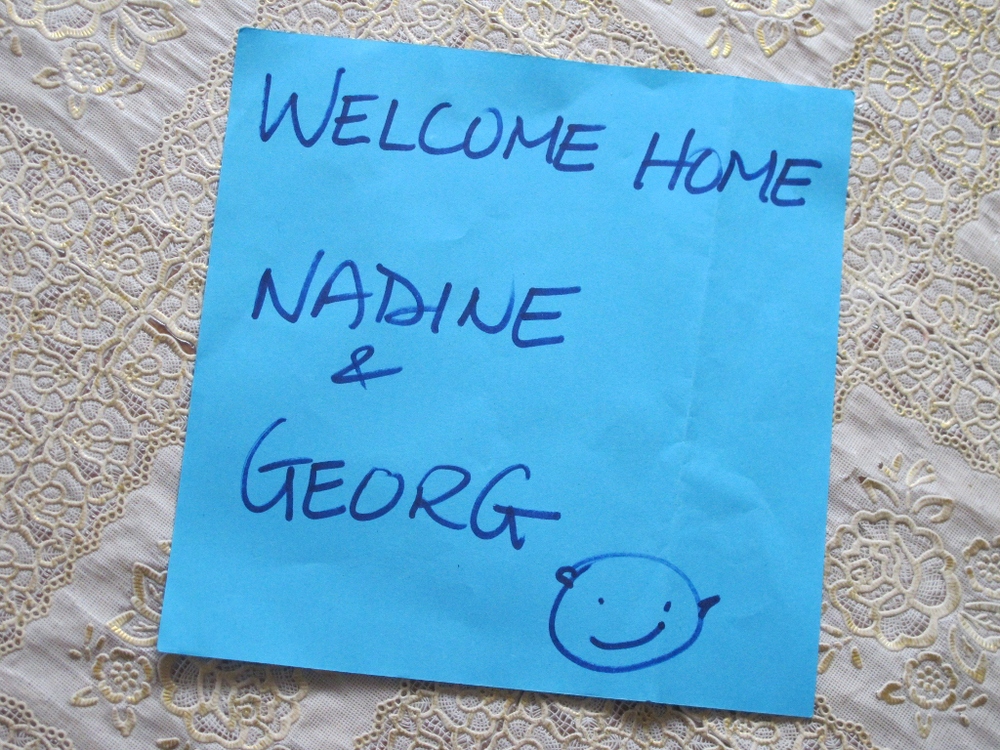 WELCOME HOME
NADINE
&
GEORG